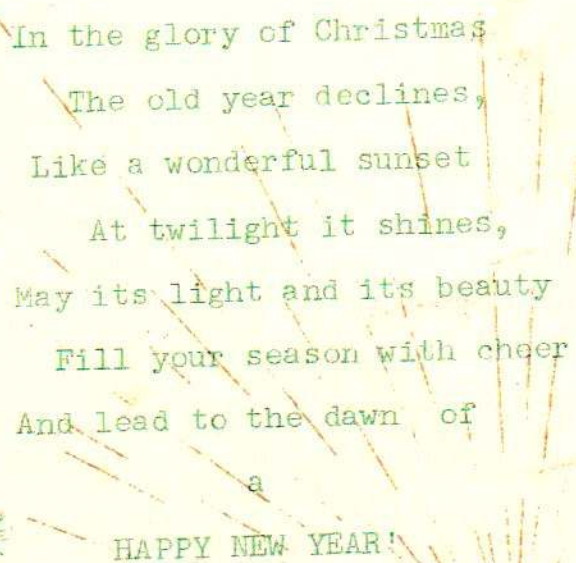 In the glory of Christmas
The old year declines,
Like a wonderful sunset
At twilight it shines,
May its light and its beauty
Fill your season with cheer
And lead to the dawn of
a
HAPPY NEW YEAR!